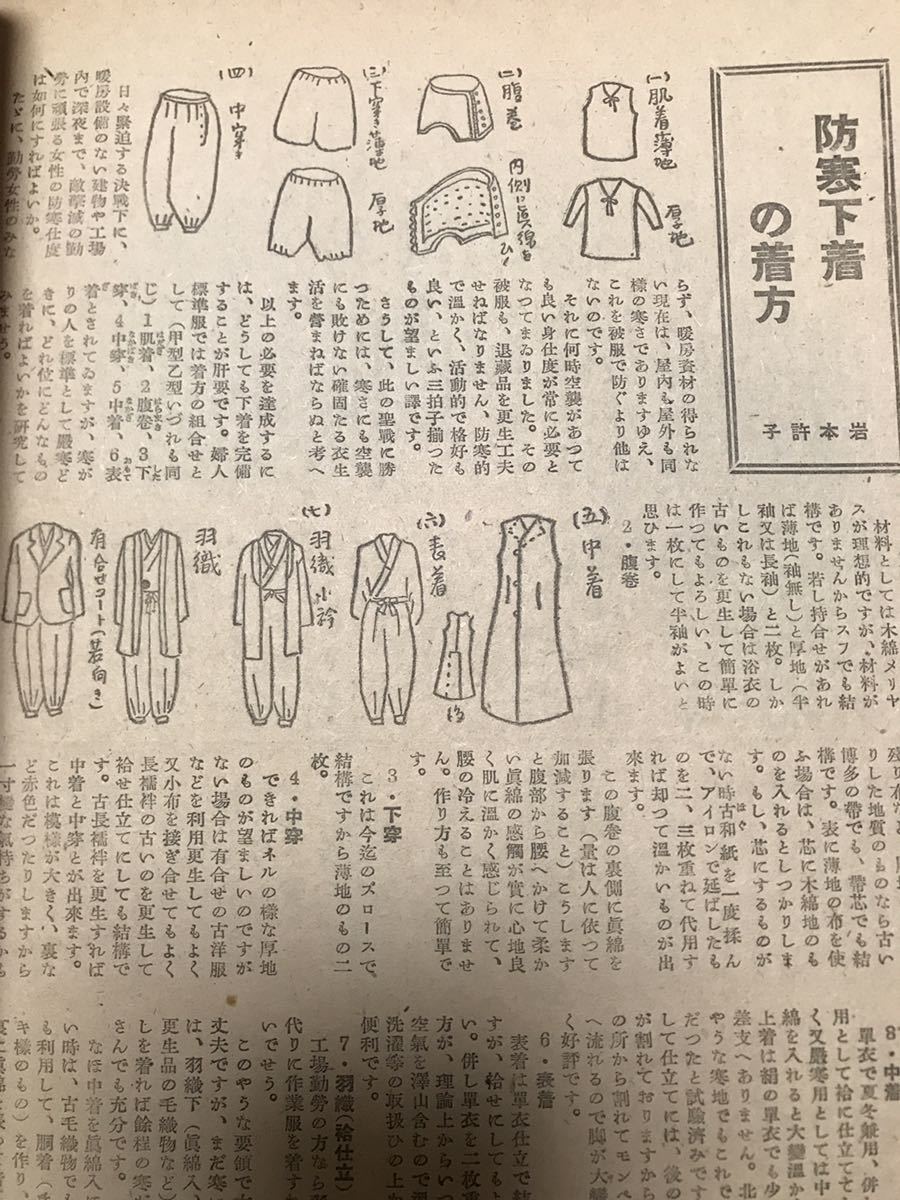 防寒下着
の着方
岩本許子
(一)肌着薄地
厚地
(二)腹巻
内側に眞綿を
ひく
(三)下穿き薄地
厚地
(四)中穿き
日々緊迫する決戰下に、
暖房設備のない建物や工場
内で深夜まで、敵撃滅の勤
勞に頑張る女性の防寒仕度
は如何にすればよいか。
たゞに、勤勞女性のみな
らず、暖房資材の得られな
い現在は、屋内も屋外も同
樣の寒さでありますゆえ、
これを被服で防ぐより他は
ないのです。
それに何時空襲があつて
も良い身仕度が常に必要と
なつてまゐりました。その
被服も、退藏品を更生工夫
せねばなりません、防寒的
で溫かく、活動的で格好も
良い、といふ三拍子揃つた
ものが望ましい譯です。
さうして、此の聖戰に勝
つためには、寒さにも空襲
にも敗けない確固たる衣生
活を營まねばならぬと考へ
ます。
以上の必要を達成するに
は、どうしても下着を完備
することが肝要です。婦人
標準服では着方の組合せと
して(甲型乙型いづれも同
じ)1肌着、2腹巻、3下
穿、4中穿、5中着、6表
着とされてゐますが、寒が
りの人を標準として嚴寒ど
きに、どれ位にどんなもの
を着ればよいかを研究して
みませう。
(五)中着
後
(六)表着
(七)羽織小衿
羽織
有合せコート(若向き)
材料としては木綿メリヤ
スが理想的ですが、材料が
ありませんからスフでも結
構です。若し持合せがあれ
ば薄地(袖無し)と厚地(半
袖又は長袖)と二枚。しか
しこれもない場合は浴衣の
古いものを更生して簡單に
作つてもよろしい、この時
は一枚にして半袖がよいと
思ひます。
2・腹巻
りした地質のものなら古い
博多の帶でも、帶芯でも結
構です。表に薄地の布を使
ふ場合は、芯に木綿地のも
のを入れるとしつかりしま
す。もし、芯にするものが
ない時古和紙を一度揉ん
で、アイロンで延ばしたも
のを二、三枚重ねて代用す
れば却つて溫かいものが出
來ます。
この腹巻の裏側に眞綿を
張ります(量は人に依つて
加減すること)こうします
と腹部から腰へかけて柔か
い眞綿の感觸が實に心地良
く肌に溫かく感じられて、
腰の冷えることはありませ
ん。作り方も至つて簡單で
す。
3・下穿
これは今迄のズロースで
結構ですから薄地のもの二
枚。
4・中穿
できればネルの樣な厚地
のものが望ましいのですが
ない場合は有合せの古洋服
などを利用更生してもよく
又小布を接ぎ合せてもよく
長襦袢の古いのを更生して
袷せ仕立てにしても結構で
す。古長襦袢を更生すれば
中着と中穿とが出來ます。
これは模樣が大きく、裏な
ど赤色だつたりしますから
一寸變な氣持ちがするかも
8・中着
單衣で夏冬兼用、併
用として袷に仕立てそ
く又嚴寒用としては中
綿を入れると大變溫か
上着は絹の單衣でも少
差支へありません。北
やうな寒地でもこれで
だつたと試驗濟みです
して仕立てには、後の
が割れておりますから
の所から割れてモンペ
へ流れるので脚が大變
く好評です。
6・表着
表着は單衣仕立で結
すが、袷せにしてもよ
い。併し單衣を二枚重
方が、理論上からいつ
空氣を澤山含むので溫
洗濯等の取扱ひの上か
便利です。
7・羽織(袷仕立)
工場勤勞の方なら羽
代りに作業服を着す
いでせう。
このやうな要領で
丈夫ですが、まだ寒
は、羽織下(眞綿入
更生品の毛織物など)
しを着れば餘程の寒
さんでも充分です。
なほ中着を眞綿入
い時は、古毛織物で
も利用して、胴着(
キ樣のもの)を作り、